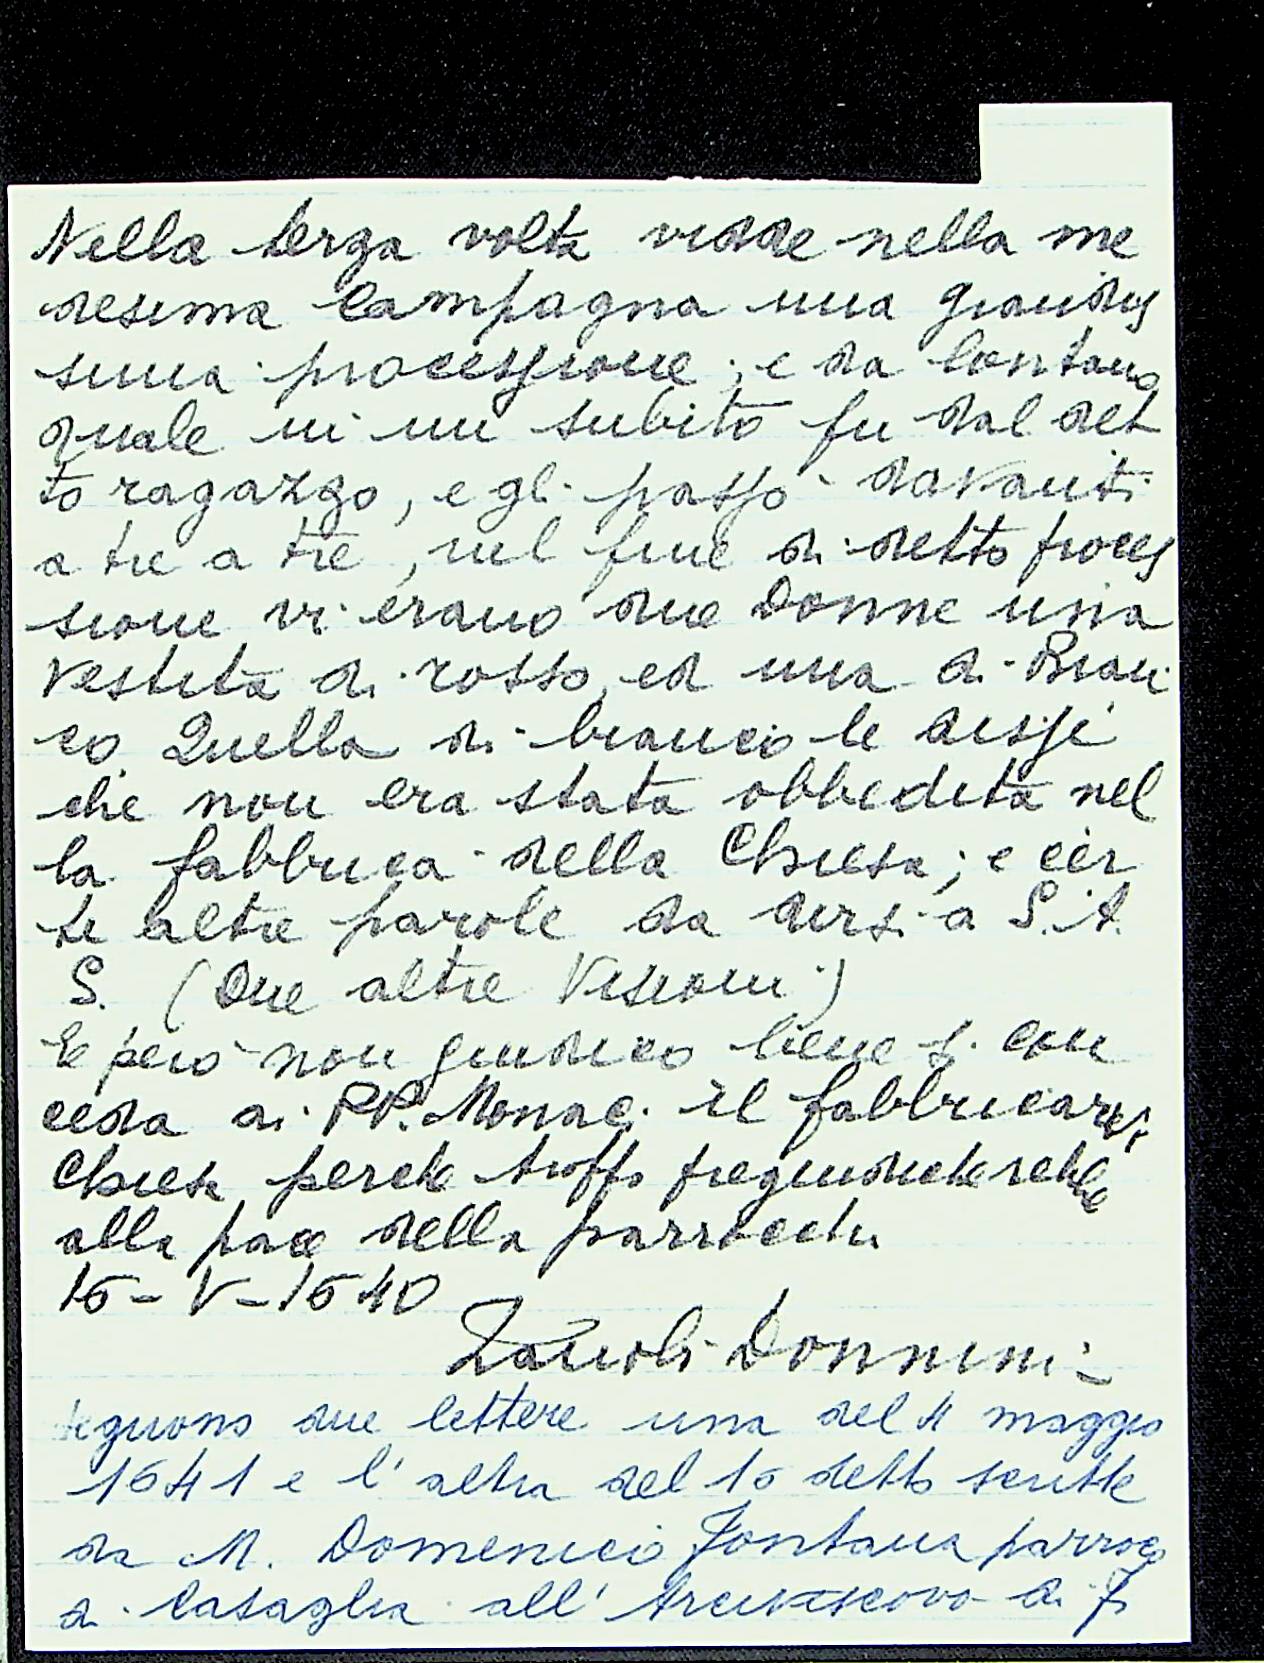 Nella terza volta vidde nella me
desima Campagna una grandis
sima processione; e da lontano
quale in un subito fu dal det
to ragazzo, e gli passò davanti
a tre a tre, nel fine di detto proces
sione vi erano due Donne una
Vestita di rosso, ed una di Bian
co. Quella di bianco le disse
che non era stata obbedita nel
la fabbrica della Chiesa; e cer
te altre parole da dirsi a S. A.
S. (Due altre Visioni)
E però non giudico bene si con
ceda ai PP. Monac. il fabbricarvi
Chiesa perche troppo pregiudicherebbe
alla pace della parrocchia
16-V-1640
Zanoli Donnini
seguono due lettere una del 4 maggio
1641 e l'altra del 16 detto scritte
da M. Domenico Fontana parroco
di Casaglia all'Arcivescovo di F.